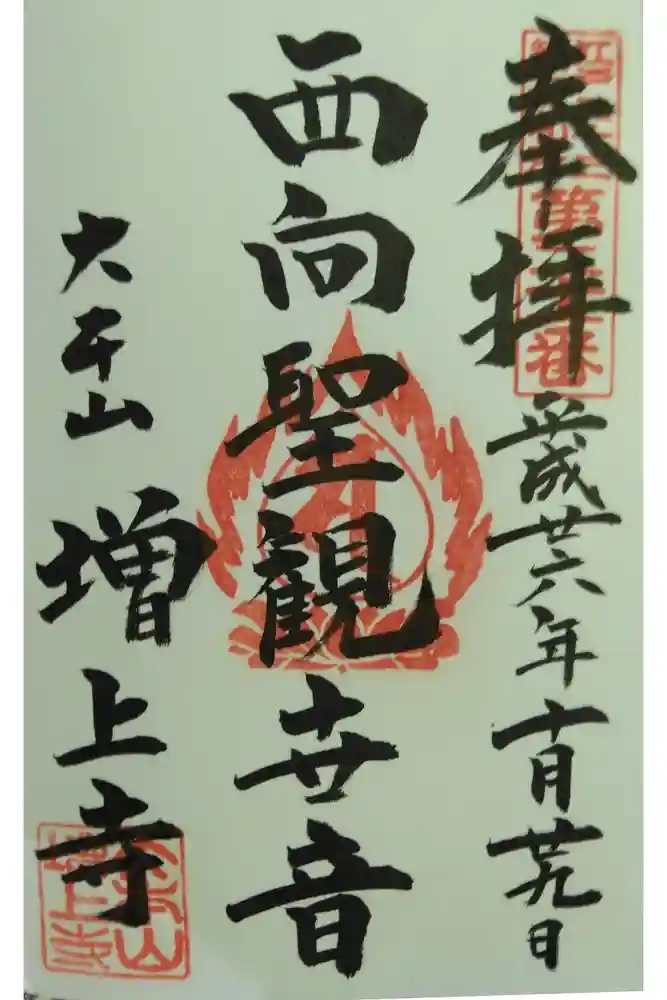 奉拝
平成廿六年十月廿九日
西向聖観世音
大本山
増上寺